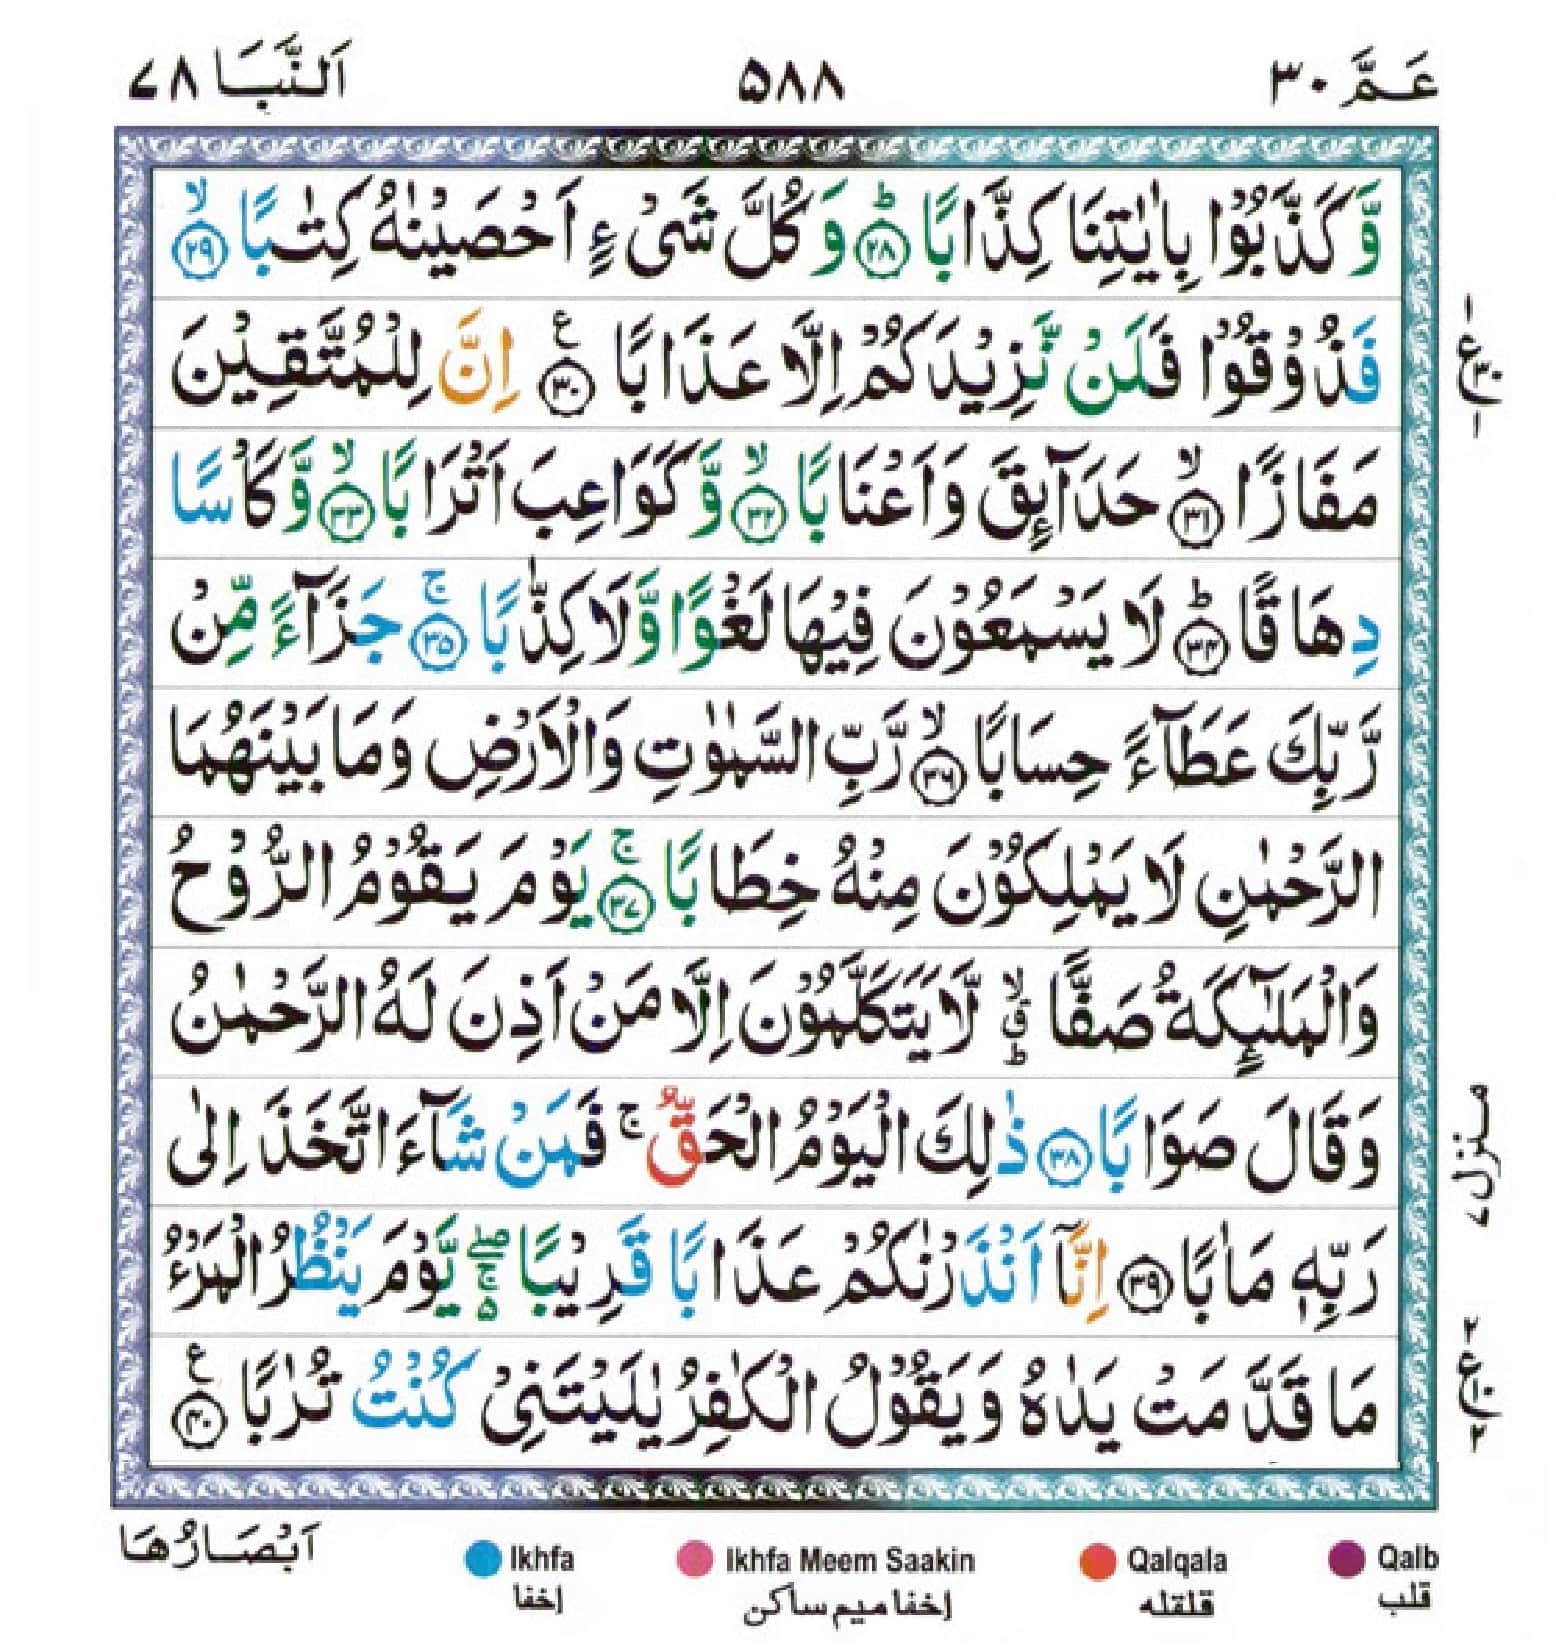 عَمَّ ٣٠ ۵٨٨ اَلنَّبَا ٧٨
وَّكَذَّبُوْا بِاٰيٰتِنَا كِذَّابًا ؕ‏﴿۲۸﴾ وَكُلَّ شَیْءٍ اَحْصَيْنٰهُ كِتٰبًا ۙ‏﴿۲۹﴾
فَذُوْقُوْا فَلَنْ نَّزِيْدَكُمْ اِلَّا عَذَابًا ﴿۳۰﴾ ع اِنَّ لِلْمُتَّقِيْنَ
ع ٣٠ ١ ١
مَفَازًا ۙ‏﴿۳۱﴾ حَدَآئِقَ وَاَعْنَابًا ۙ‏﴿۳۲﴾ وَّكَوَاعِبَ اَتْرَابًا ۙ‏﴿۳۳﴾ وَّكَاْسًا
دِهَاقًا ؕ‏﴿۳۴﴾ لَا يَسْمَعُوْنَ فِيْهَا لَغْوًا وَّلَا كِذّٰبًا ۚ‏﴿۳۵﴾ جَزَآءً مِّنْ
رَّبِّكَ عَطَآءً حِسَابًا ۙ‏﴿۳۶﴾ رَّبِّ السَّمٰوٰتِ وَالْاَرْضِ وَمَا بَيْنَهُمَا
الرَّحْمٰنِ لَا يَمْلِكُوْنَ مِنْهُ خِطَابًا ۚ‏﴿۳۷﴾ يَوْمَ يَقُوْمُ الرُّوْحُ
وَالْمَلٰٓئِكَةُ صَفًّا ۙق ط لَّا يَتَكَلَّمُوْنَ اِلَّا مَنْ اَذِنَ لَهُ الرَّحْمٰنُ
وَقَالَ صَوَابًا ﴿۳۸﴾ ذٰلِكَ الْيَوْمُ الْحَقُّ ۚ فَمَنْ شَآءَ اتَّخَذَ اِلٰى
منزل ٧
رَبِّهٖ مَاٰبًا ﴿۳۹﴾ اِنَّآ اَنْذَرْنٰكُمْ عَذَابًا قَرِيْبًا ۖۚ ۵ يَّوْمَ يَنْظُرُ الْمَرْءُ
مَا قَدَّمَتْ يَدٰهُ وَيَقُوْلُ الْكٰفِرُ يٰلَيْتَنِیْ كُنْتُ تُرٰبًا ﴿۴۰﴾ ع
٢ ع ١٠ ٢
اَبْصَارُهَا
Ikhfa Ikhfa Meem Saakin Qalqala Qalb
إخفا إخفا ميم ساكن قلقله قلب